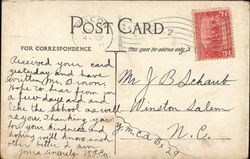 POST CARD
FOR CORRESPONDENCE
This space for address only.
Received your card
yesterday and have
written Mr. Brown.
Hope to hear from you
in a few days and
like the school as well
as you. Thanking you
for your kindness and
hoping will know each
other better I am
Yours sincerely
Mr J B Schaub
Winston Salem
N. C.
Y.M.C.A.